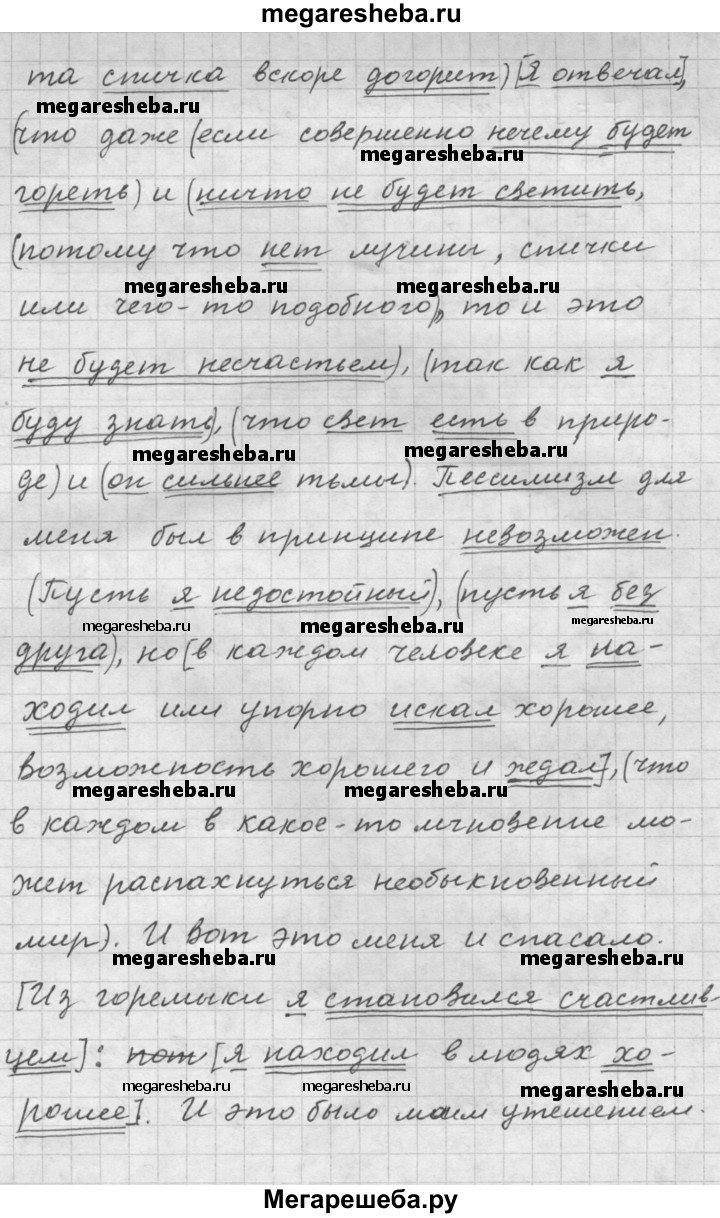 megaresheba.ru
та спичка вскоре догорит) [Я отвечал],
megaresheba.ru
(что даже (если совершенно нечему будет
megaresheba.ru
гореть) и (ничто не будет светить,
(потому что нет лучины, спички
megaresheba.ru megaresheba.ru
или чего-то подобного), то и это
не будет несчастьем), (так как я
буду знать), (что свет есть в приро-
megaresheba.ru megaresheba.ru
де) и (он сильнее тьмы). Пессимизм для
меня был в принципе невозможен.
(Пусть я недостойный), (пусть я без
megaresheba.ru megaresheba.ru megaresheba.ru
друга), но [в каждом человеке я на-
ходил или упорно искал хорошее,
возможность хорошего и ждал], (что
megaresheba.ru megaresheba.ru
в каждом в какое-то мгновение мо-
жет распахнуться необыкновенный
мир). И вот это меня и спасало.
megaresheba.ru megaresheba.ru
[Из горемыки я становился счастлив-
цем]: пот [я находил в людях хо-
megaresheba.ru megaresheba.ru
рошее]. И это было моим утешением.
Мегарешеба.ру